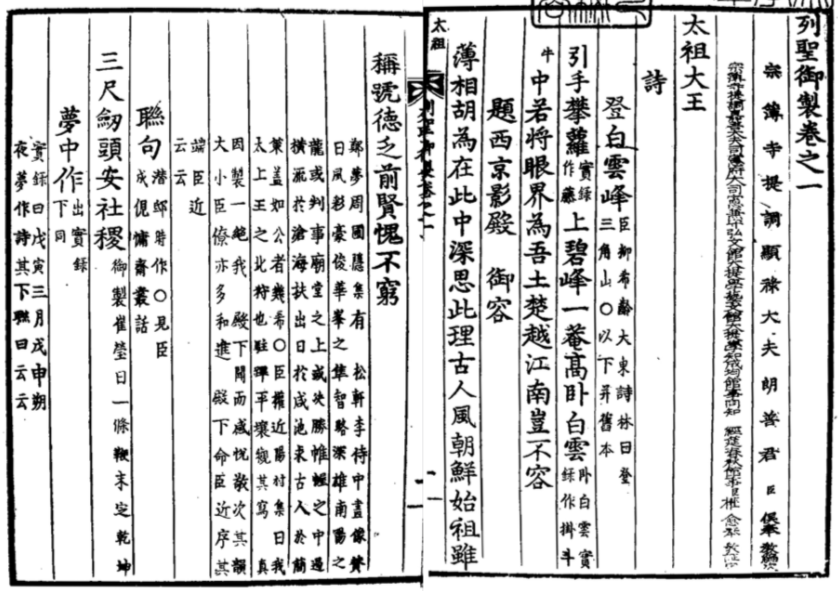 列聖御製卷之一
宗簿寺提調顯祿大夫朗善君臣俁奉教編次
太祖大王
詩
登白雲峰臣柳希齡大東詩林曰登三角山○以下幷舊本
引手攀蘿實錄作藤上碧峰一菴高卧白雲卧白雲實錄作掛斗牛
中若將眼界為吾土楚越江南豈不容
題西京影殿 御容
薄相胡為在此中深思此理古人風朝鮮始祖雖
太祖
列聖御製卷之一
一
稱號德乏前賢愧不窮
鄭夢周圃隱集有 松軒李侍中畫像贊
曰風彩豪俊華峯之隼智略深雄南陽之
龍或判事廟堂之上或決勝帷幄之中遏
橫流於滄海扶出日於咸池求古人於簡
策盖如公者幾希○臣權近陽村集曰我
太上王之北狩也駐蹕平壤觀其寫 真
因製一絶我 殿下聞而感悅敬次其韻
大小臣僚亦多和進 殿下命臣近序其
端臣近
云云
聯句潜邸時作○見臣成俔慵齋叢話
三尺劒頭安社稷御製崔瑩曰一條鞭末定乾坤
夢中作出實錄下同
實錄曰戊寅三月戊申朔
夜夢作詩其下聯曰云云